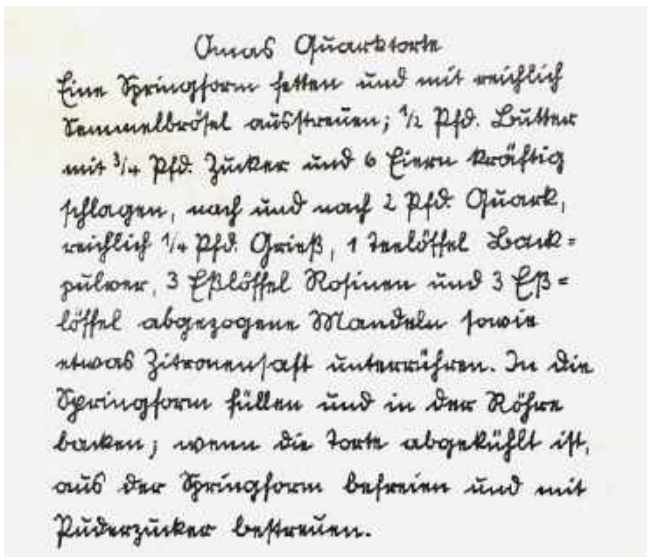 Omas Quarktorte
Eine Springform fetten und mit reichlich
Semmelbrösel ausstreuen; 1/2 Pfd. Butter
mit 3/4 Pfd. Zucker und 6 Eiern kräftig
schlagen, nach und nach 2 Pfd. Quark,
reichlich 1/4 Pfd. Grieß, 1 Teelöffel Back=
pulver, 3 Eßlöffel Rosinen und 3 Eß=
löffel abgezogene Mandeln sowie
etwas Zitronensaft unterrühren. In die
Springform füllen und in der Röhre
backen; wenn die Torte abgekühlt ist,
aus der Springform befreien und mit
Puderzucker bestreuen.